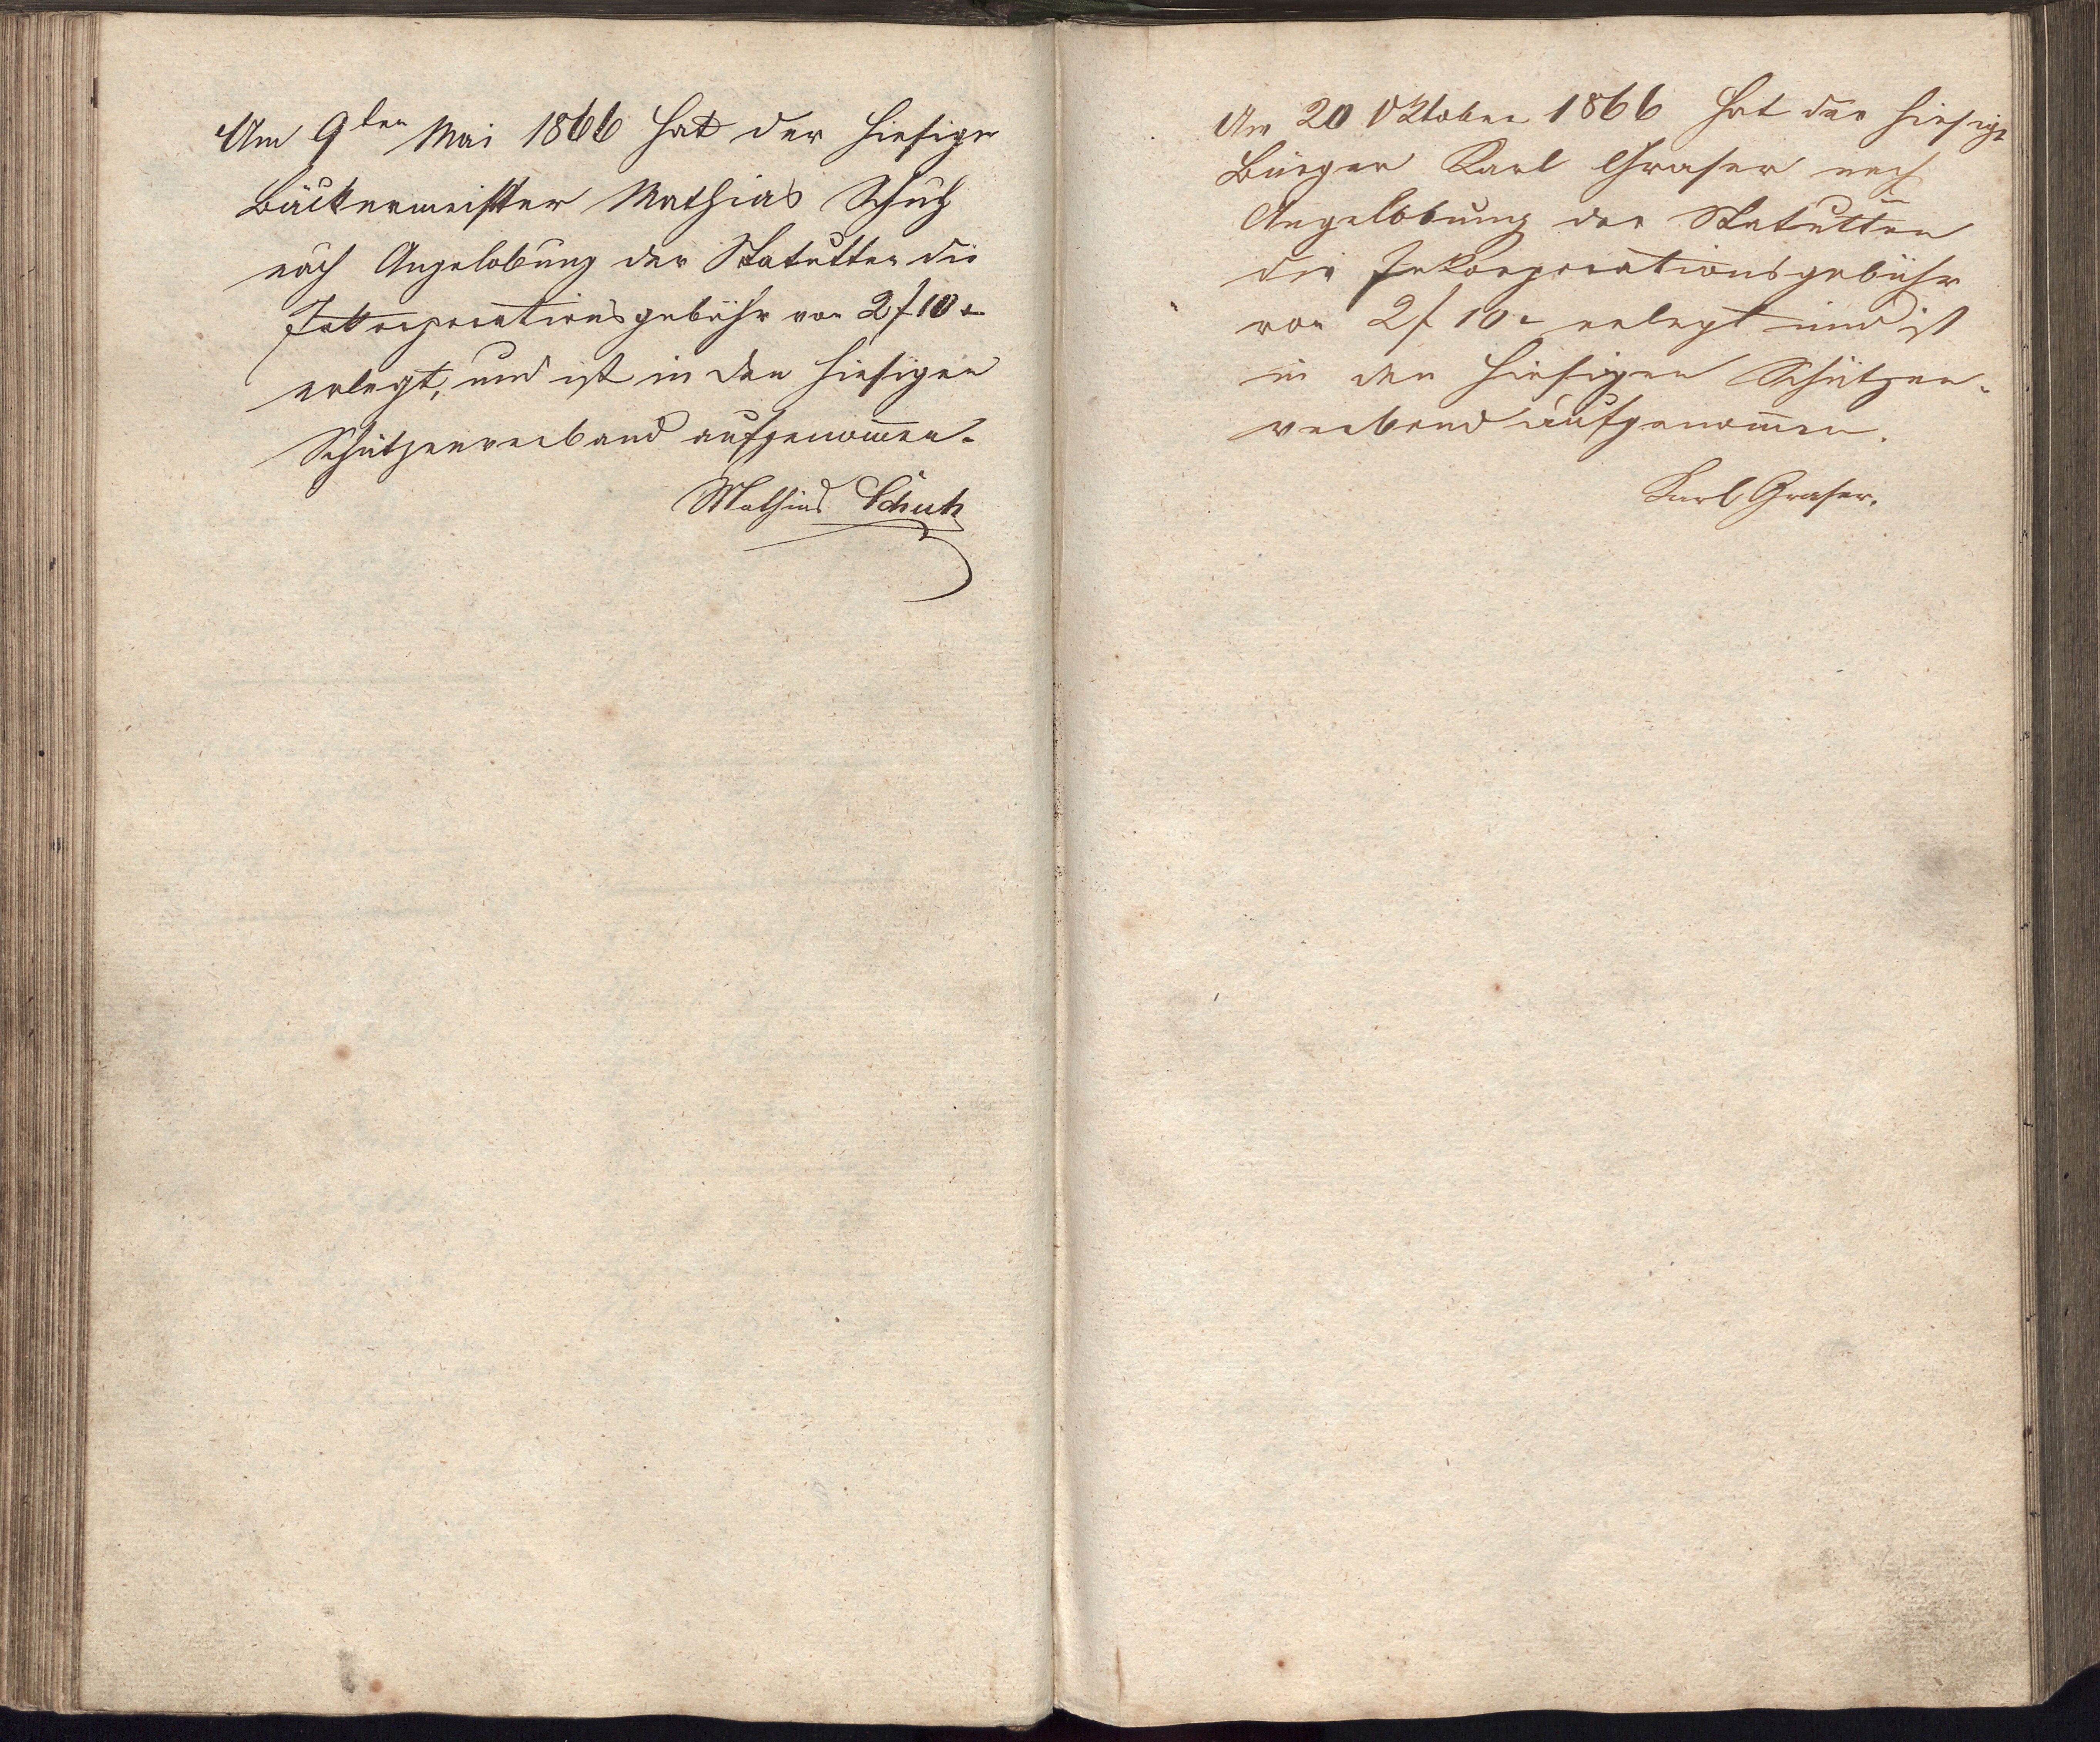 Am 9ten Mai 1866 hat der hiesige
Bäckermeister Mathias Schutz
nach Angelobung der Statutten die
Inkorporationsgebühr von 2 f 10 x
erlegt, und ist in den hiesigen
Schützenverband aufgenom̄en.
Mathias Schutz
Am 20 Oktober 1866 hat der hiesige
Bürger Karl Graser nach
Angelobung der Statutten
die Inkorporationsgebühr
von 2 f 10 x erlegt und ist
in den hiesigen Schützen-
verband aufgenom̄en.
Karl Graser.